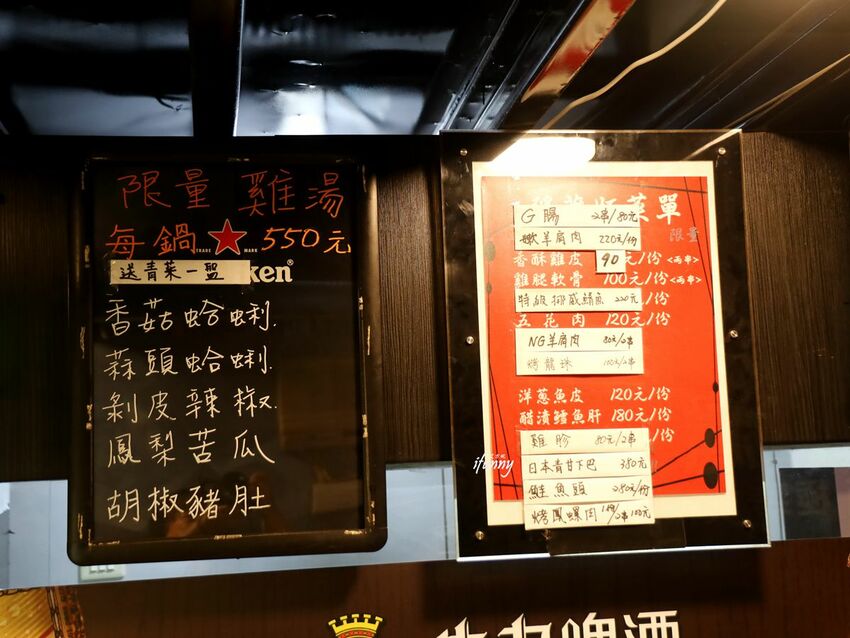 限量雞湯
每鍋 TRADE MARK 550元
送青菜一盤
ken®
香菇蛤蜊.
蒜頭蛤蜊.
剝皮辣椒.
鳳梨苦瓜
胡椒豬肚
菜單
限量
G腸 2串/80元
嫩羊肩肉 220元/份
香酥雞皮 90元/份<兩串>
雞腿軟骨 100元/份<兩串>
特級挪威鯖魚 220元/份
五花肉 120元/份
NG羊肩肉 80元/2串
烤龍珠 100元/2串
洋蔥魚皮 120元/份
醋漬鱈魚肝 180元/份
雞胗 80元/2串
日本青甘下巴 350元
鮭魚頭 250元/份
烤鳳螺肉 1份/2串100元
ifunny
啤酒